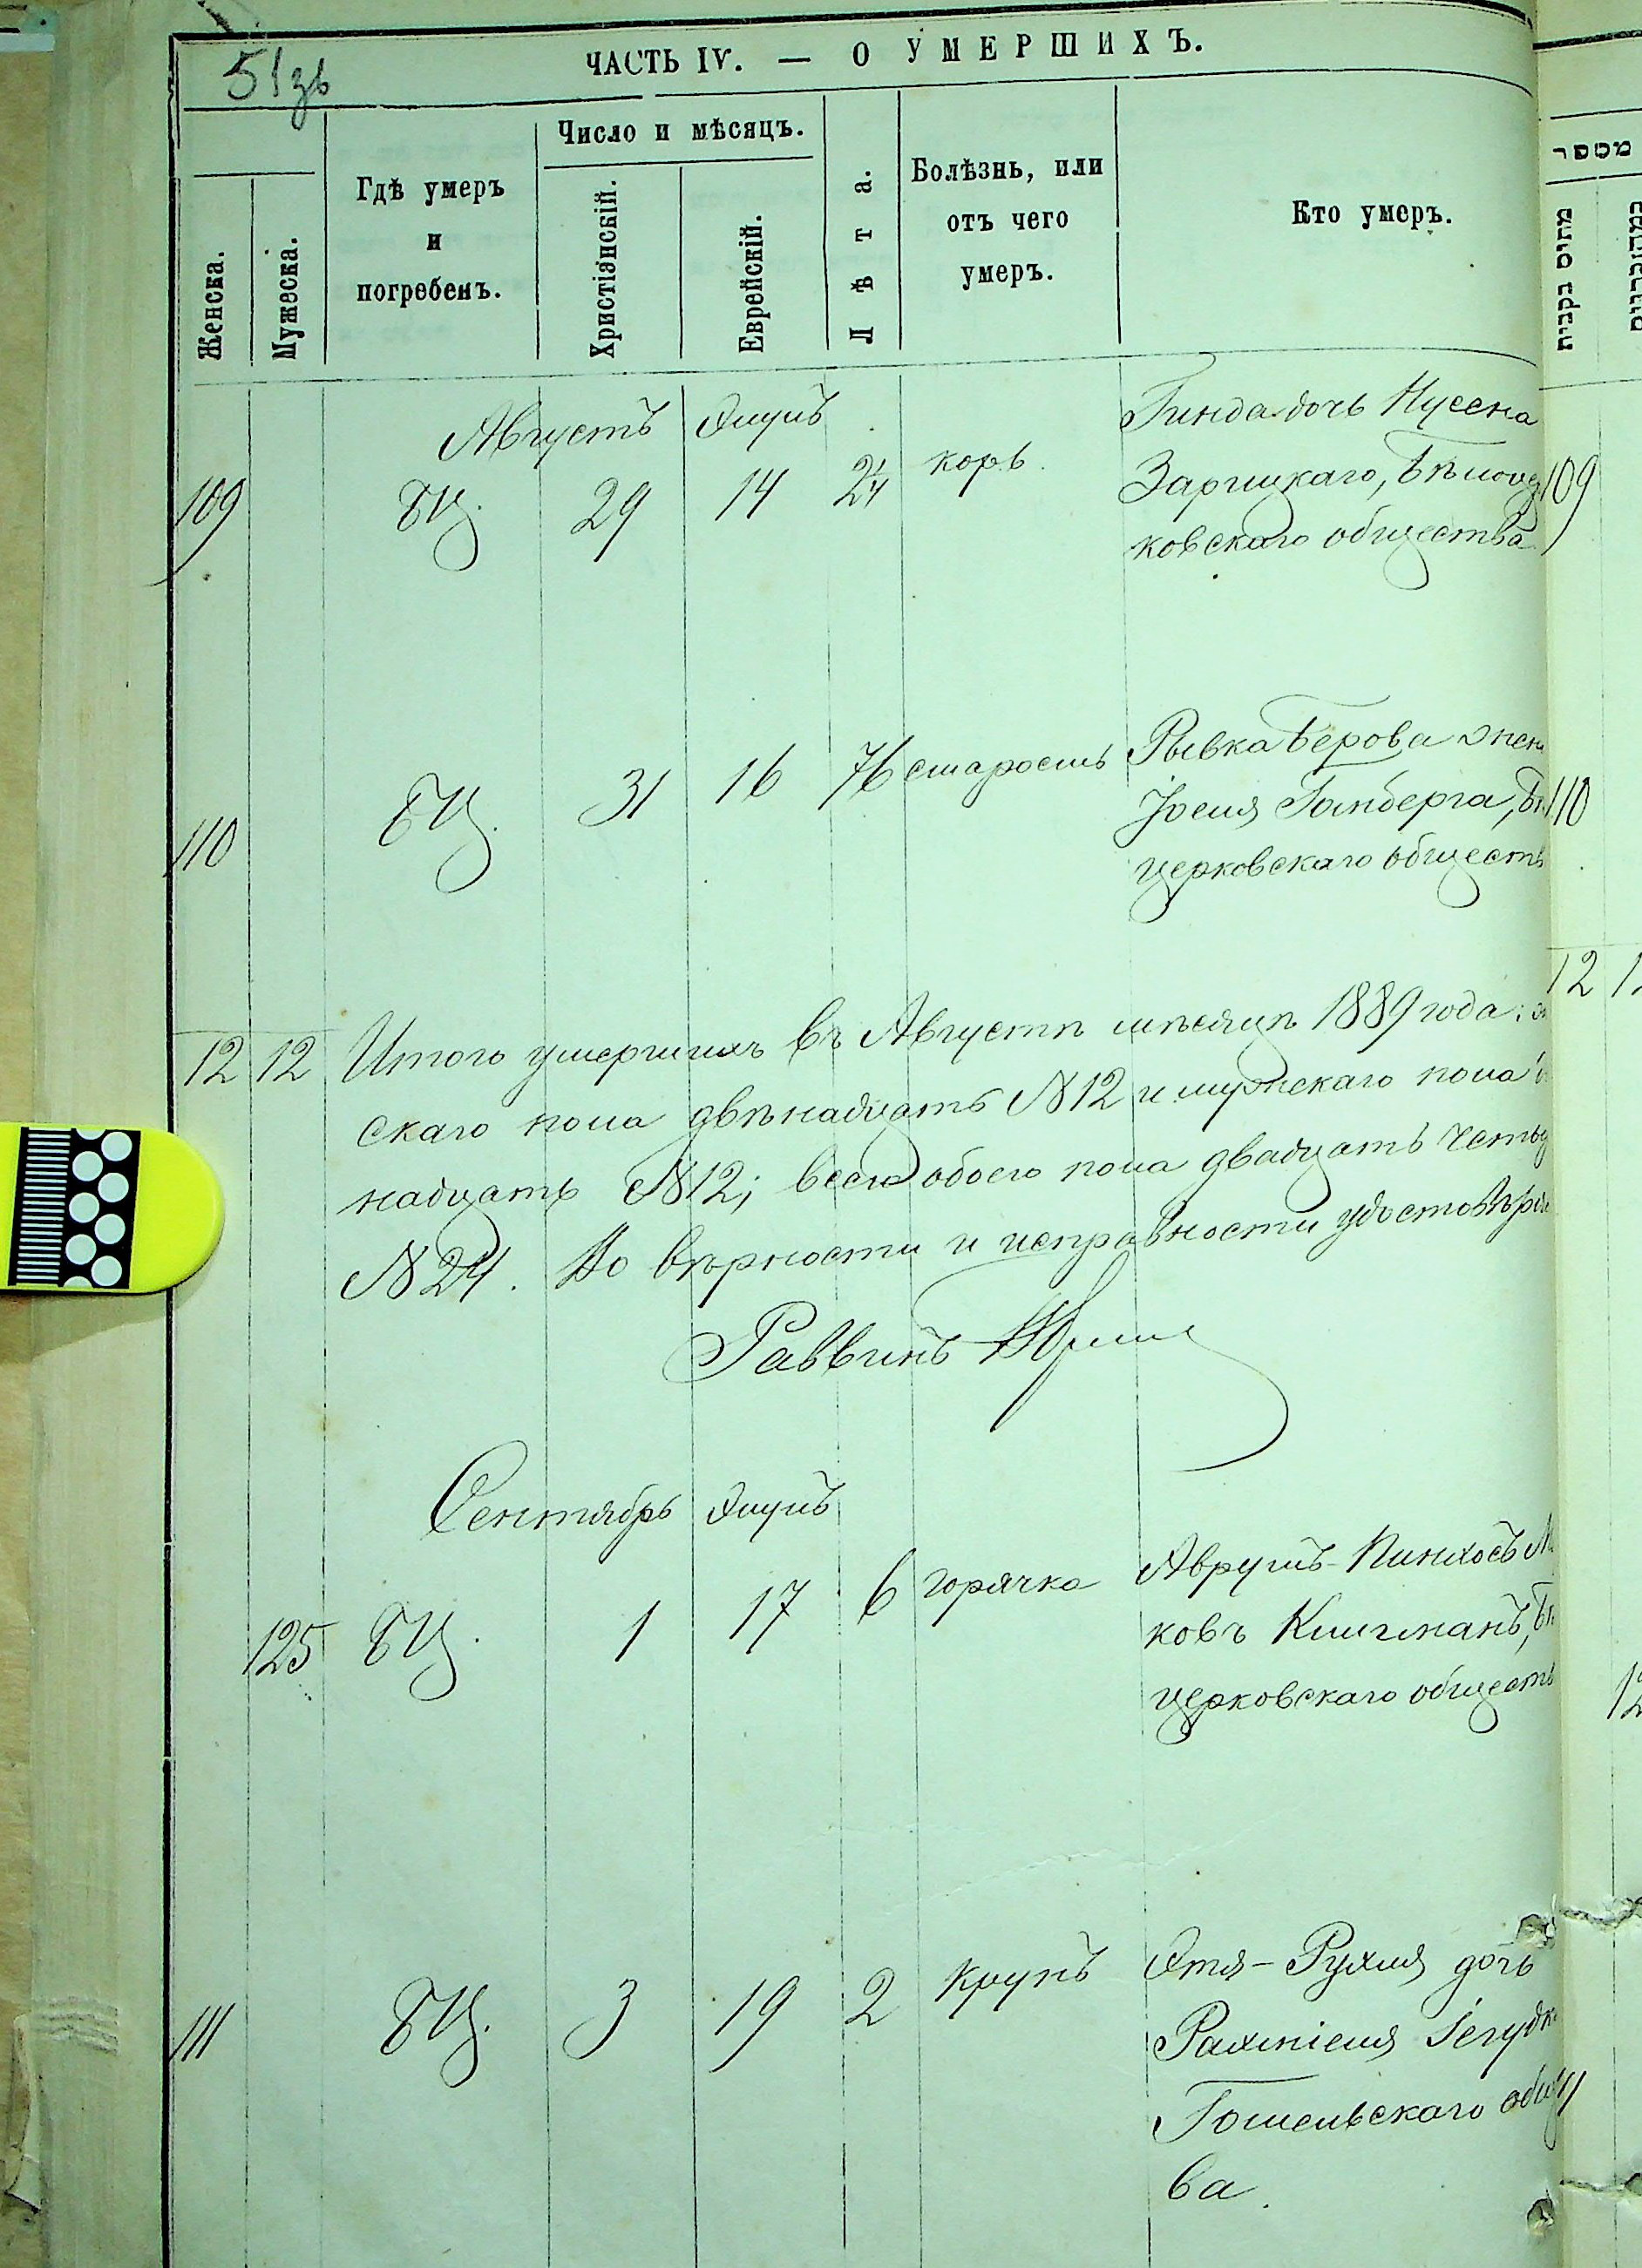 51зв
ЧАСТЬ IV. — О УМЕРШИХЪ.
Женска.
Мужеска.
Гдѣ умеръ
и
погребенъ.
Число и мѣсяцъ.
Христіанскій.
Еврейскій.
Лѣта.
Болѣзнь, или
отъ чего
умеръ.
Кто умеръ.
Августъ Элулъ
109 БЦ. 29 14 корь.
Гинда дочь Нусена
Зарицкаго,
ковскаго общества
110 БЦ. 31 16 76 старость
Рывка Берова жен
Іосия Голнберга, Бѣ
церковскаго обществ
12 12 Итого умершихъ въ Августѣ мѣсяцѣ 1889 года:
скаго пола двѣнадцать N12 и мужскаго пола
надцать N12; всего обоего пола двадцать четы
N24. Во вѣрности и исправности удостовѣр
Раввинъ
Сентябрь Элулъ
125 БЦ. 1 17 6 горячка
Аврумъ-Пинхосъ М
ковъ Клигманъ, Бѣ
церковскаго обществ
111 БЦ. 3 19 2 крупъ
Этя-Рухля дочь
Рахміеля Іегудк
Гомельскаго общ
ва.
מספר
מתים בקבות
109
110
12